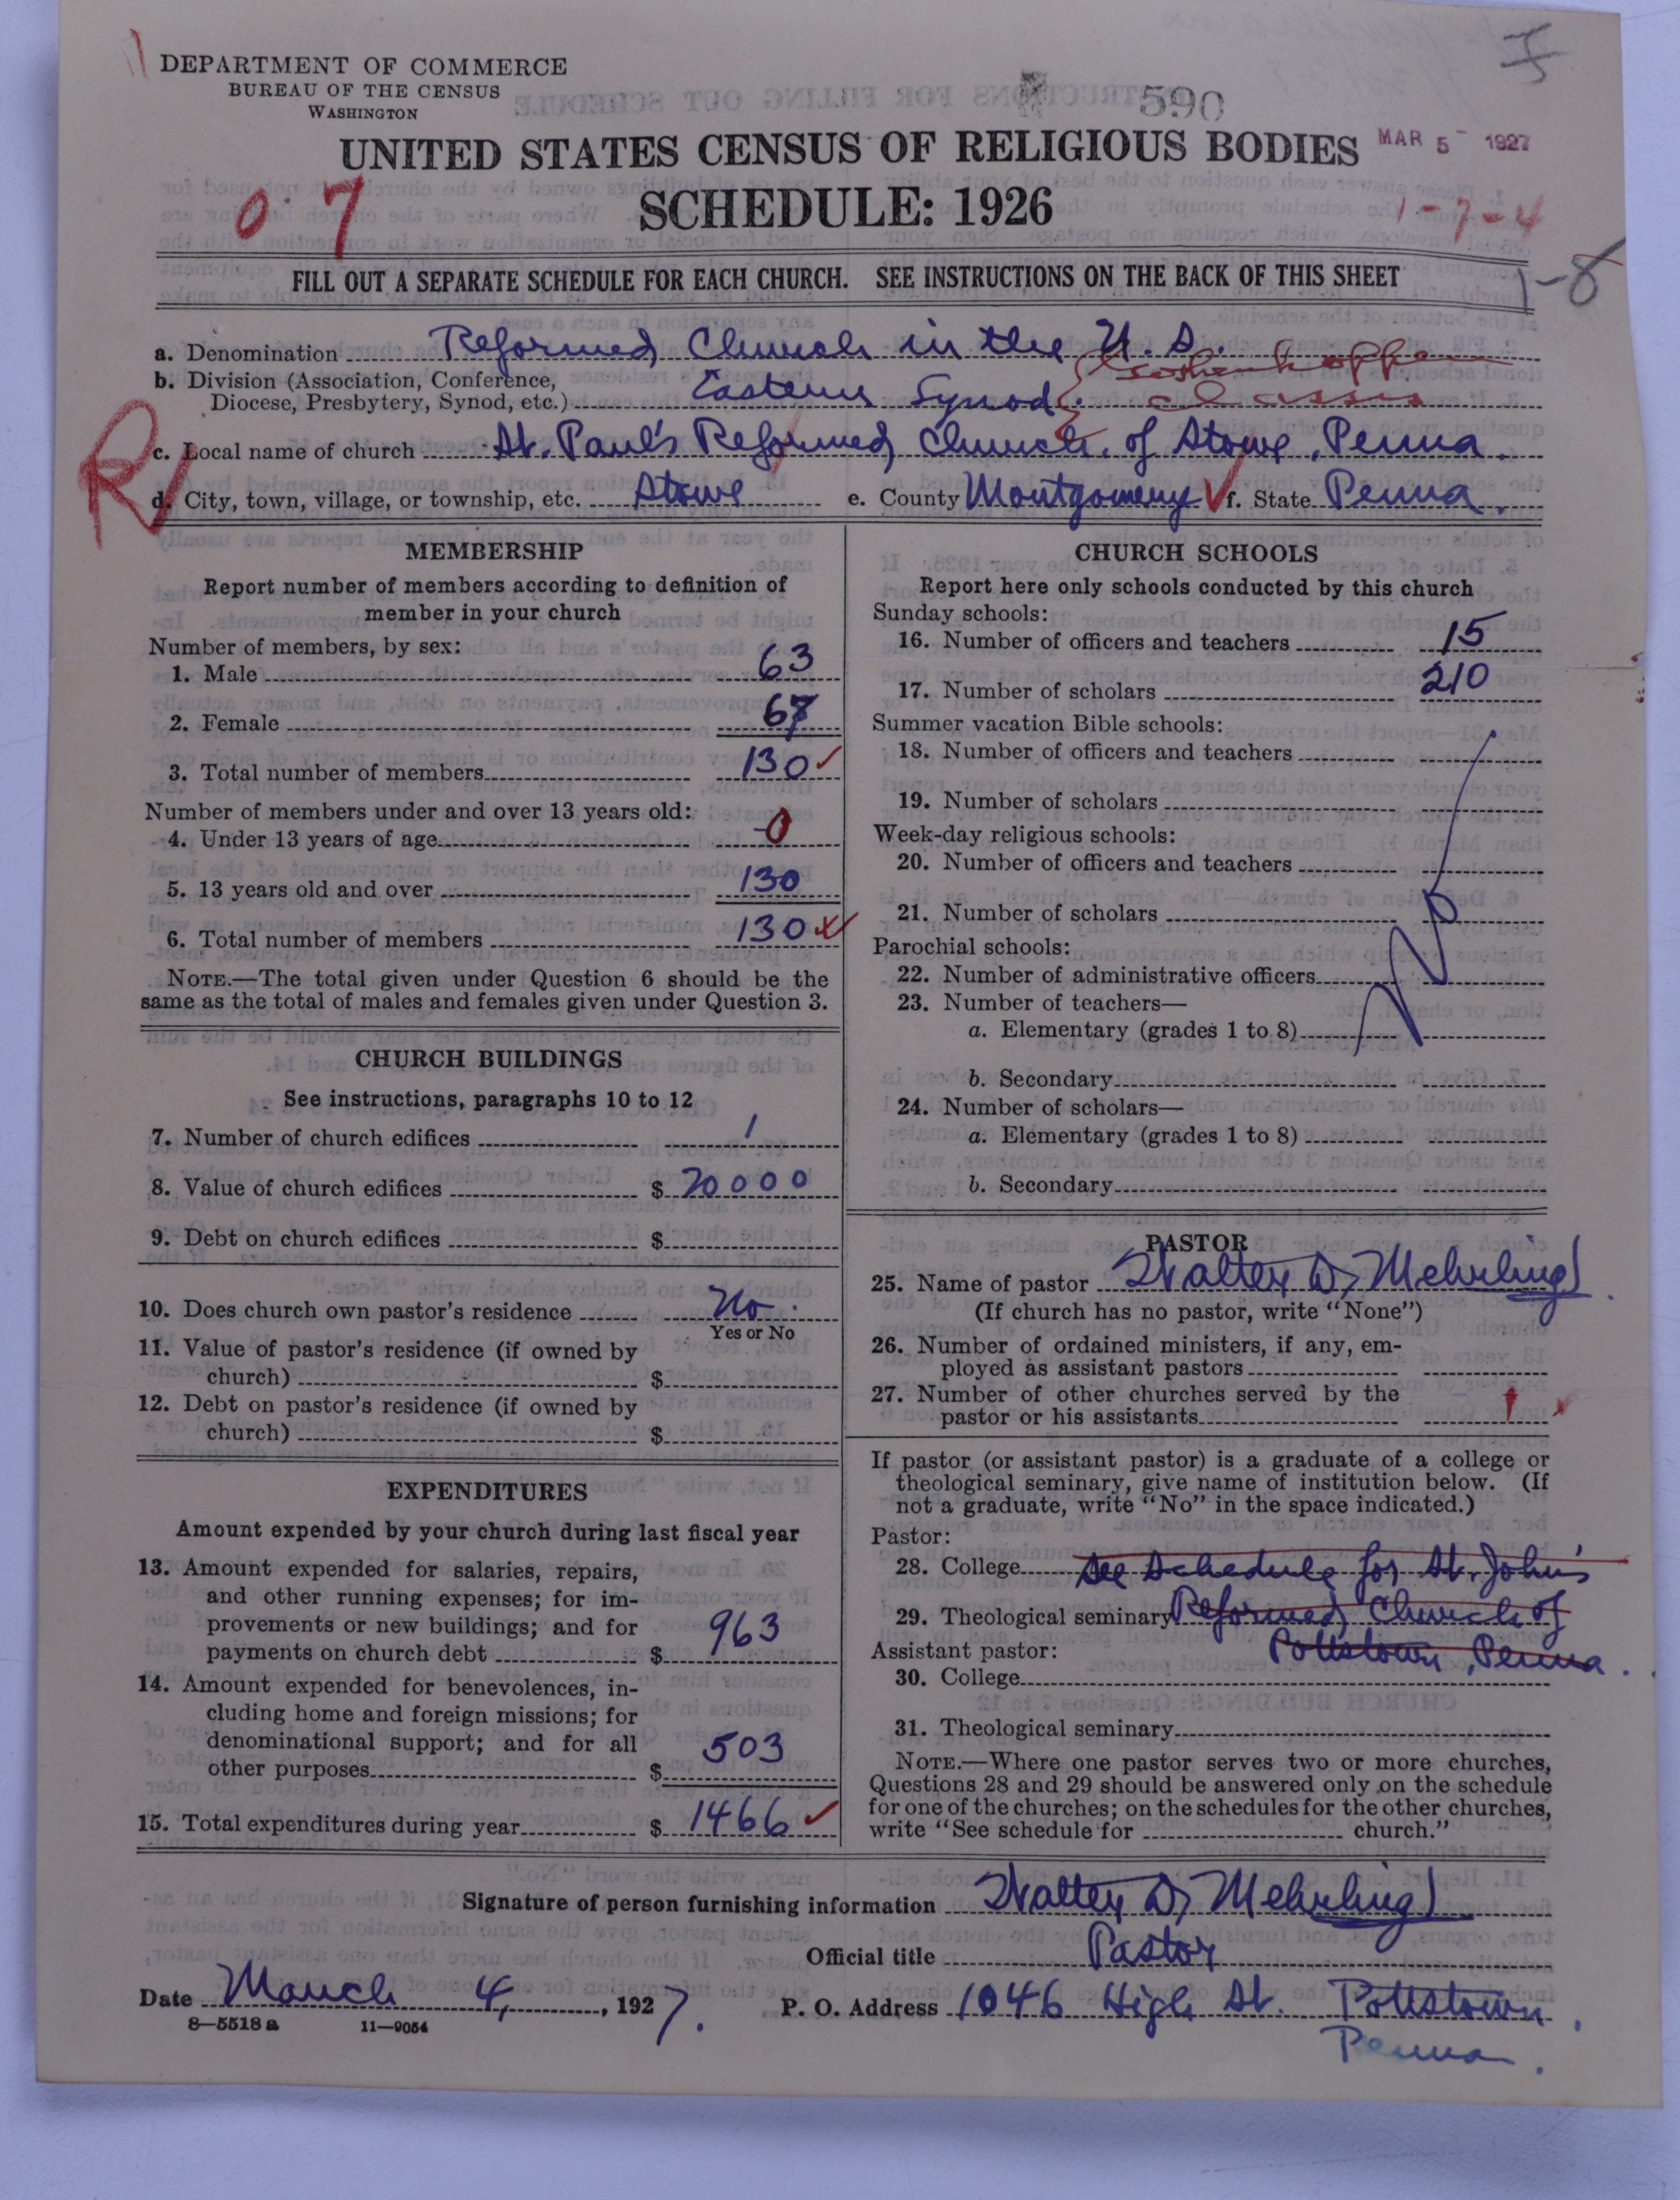 DEPARTMENT OF COMMERCE
BUREAU OF THE CENSUS
WASHINGTON
590
UNITED STATES CENSUS OF RELIGIOUS BODIES
MAR 5 - 1927
SCHEDULE: 1926
0 7
1-7-4
FILL OUT A SEPARATE SCHEDULE FOR EACH CHURCH. SEE INSTRUCTIONS ON THE BACK OF THIS SHEET
1-8
a. Denomination Reformed Church in the U. S.
b. Division (Association, Conference, Diocese, Presbytery, Synod, etc.) Eastern Synod. Goshenhoppen Classis
R
c. Local name of church St. Paul's Reformed Church, of Stowe, Penna.
d. City, town, village, or township, etc. Stowe e. County Montgomery f. State Penna.
MEMBERSHIP
Report number of members according to definition of
member in your church
Number of members, by sex:
1. Male 63
2. Female 67
3. Total number of members 130
Number of members under and over 13 years old:
4. Under 13 years of age 0
5. 13 years old and over 130
6. Total number of members 130
NOTE.—The total given under Question 6 should be the
same as the total of males and females given under Question 3.
CHURCH BUILDINGS
See instructions, paragraphs 10 to 12
7. Number of church edifices 1
8. Value of church edifices $ 20000
9. Debt on church edifices $
10. Does church own pastor's residence No.
Yes or No
11. Value of pastor's residence (if owned by
church) $
12. Debt on pastor's residence (if owned by
church) $
EXPENDITURES
Amount expended by your church during last fiscal year
13. Amount expended for salaries, repairs,
and other running expenses; for im-
provements or new buildings; and for
payments on church debt $ 963
14. Amount expended for benevolences, in-
cluding home and foreign missions; for
denominational support; and for all
other purposes $ 503
15. Total expenditures during year $ 1466
CHURCH SCHOOLS
Report here only schools conducted by this church
Sunday schools:
16. Number of officers and teachers 15
17. Number of scholars 210
Summer vacation Bible schools:
18. Number of officers and teachers
19. Number of scholars
Week-day religious schools:
20. Number of officers and teachers
21. Number of scholars
No
Parochial schools:
22. Number of administrative officers
23. Number of teachers—
a. Elementary (grades 1 to 8)
b. Secondary
24. Number of scholars—
a. Elementary (grades 1 to 8)
b. Secondary
PASTOR
25. Name of pastor Walter D. Mehrling
(If church has no pastor, write "None")
26. Number of ordained ministers, if any, em-
ployed as assistant pastors
27. Number of other churches served by the
pastor or his assistants 1
If pastor (or assistant pastor) is a graduate of a college or
theological seminary, give name of institution below. (If
not a graduate, write "No" in the space indicated.)
Pastor:
28. College See Schedule for St. John's
29. Theological seminary Reformed Church of
Assistant pastor: Pottstown, Penna.
30. College
31. Theological seminary
NOTE.—Where one pastor serves two or more churches,
Questions 28 and 29 should be answered only on the schedule
for one of the churches; on the schedules for the other churches,
write "See schedule for church."
Signature of person furnishing information Walter D. Mehrling
Official title Pastor
Date March 4, 1927. P. O. Address 1046 High St. Pottstown,
Penna.
8—5518 a 11—9054